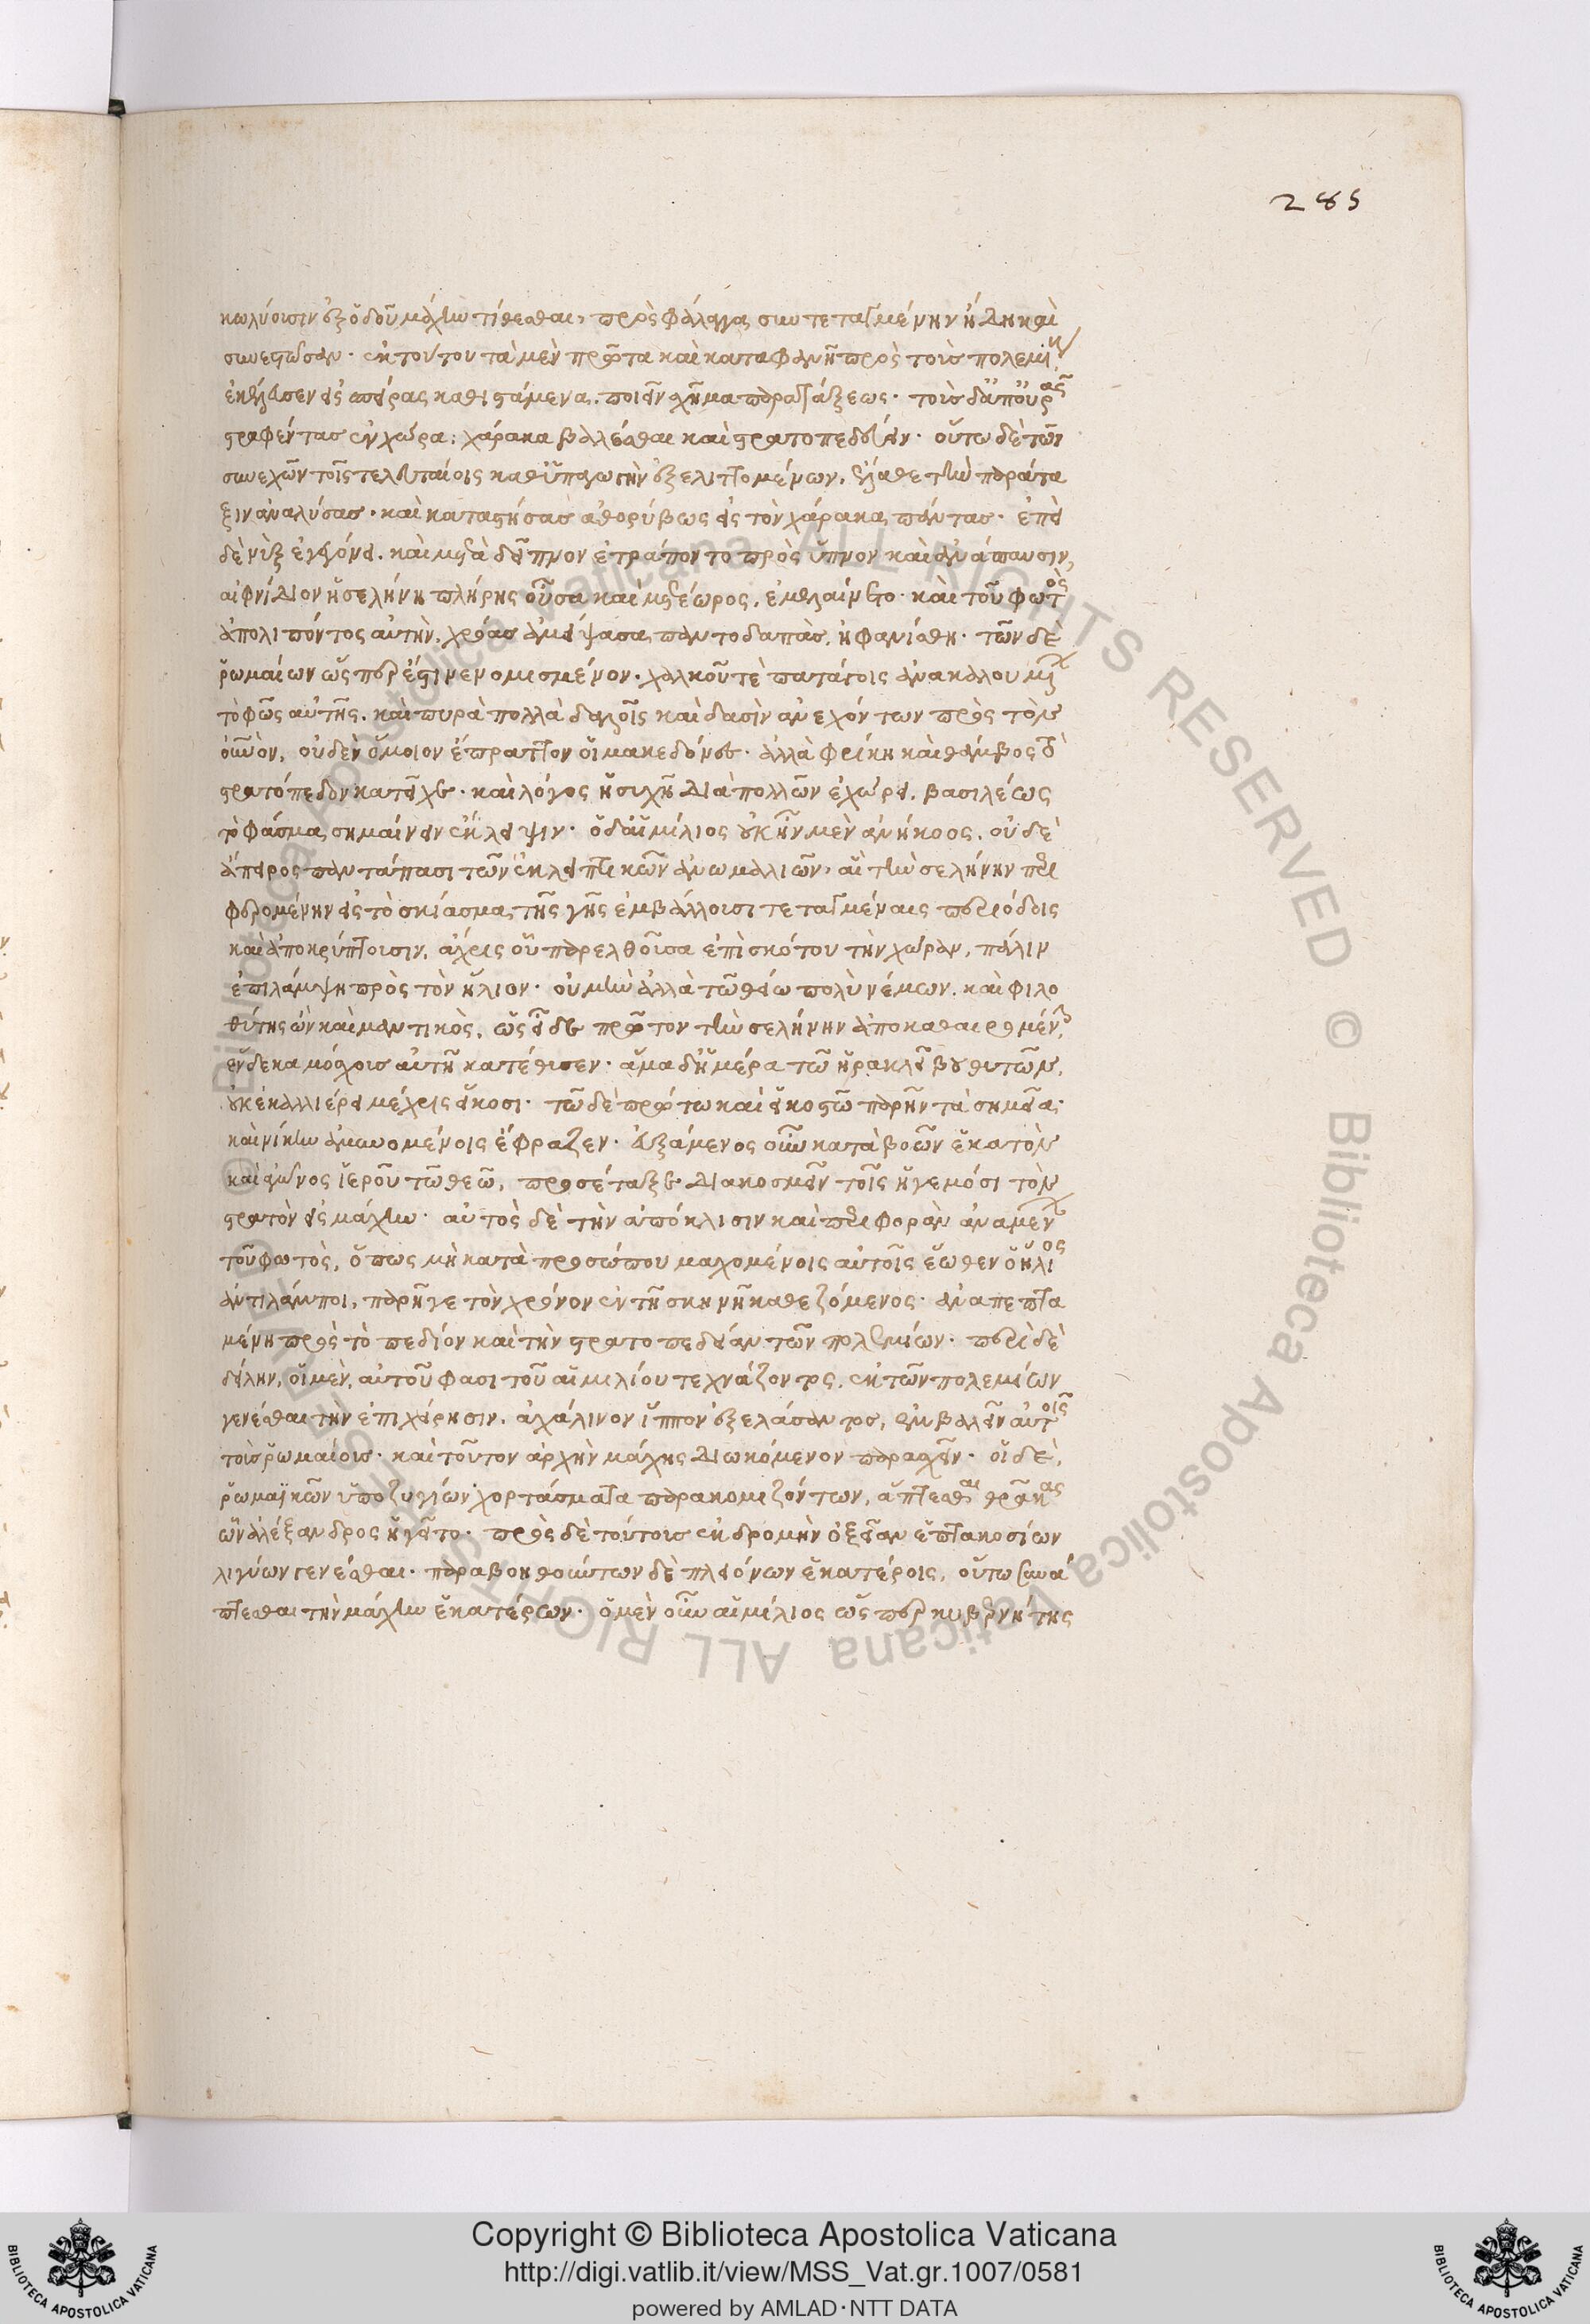 285
κωλύουσιν ἐξ ὁδοῦ μάχην τίθεσθαι, πρὸς φάλαγγα συντεταγμένην ἤδη καὶ
συνεστῶσαν. ἐκ τούτου τὰ μὲν πρῶτα καὶ καταφανῆ πρὸς τοὺς πολεμί
ἐκέλευσεν εἰς σπείρας καθιστάμενα. ποιεῖν σχῆμα παρατάξεως. τοὺς δ' ἀπ' οὐρᾶς
στραφέντας ἐν χώρα: χάρακα βαλέσθαι καὶ στρατοπεδεύειν. οὕτω δὲ τῶν
συνεχῶν τοῖς τελευταίοις καθ' ὑπαγωγὴν ἐξελιττομένων. ἔλαθε τὴν παράτα
ξιν ἀναλύσας. καὶ καταστήσας ἀθορύβως εἰς τὸν χάρακα πάντας. ἐπεὶ
δὲ νὺξ ἐγεγόνει. καὶ μετὰ δεῖπνον ἐτράποντο πρὸς ὕπνον καὶ ἀνάπαυσιν,
αἰφνίδιον ἡ σελήνη πλήρης οὖσα καὶ μετέωρος, ἐμελαίνετο. καὶ τοῦ φωτὸς
ἀπολιπόντος αὐτὴν, χρόας ἀμείψασα παντοδαπὰς, ἠφανίσθη. τῶν δὲ
ῥωμαίων ὥσπερ ἐστὶ νενομισμένον. χαλκοῦ τὲ πατάγοις ἀνακαλουμένων
τὸ φῶς αὐτῆς. καὶ πυρὰ πολλὰ δαλοῖς καὶ δασὶν ἀνεχόντων πρὸς τὸν
οὐρανὸν, οὐδὲν ὅμοιον ἔπραττον οἱ μακεδόνες. ἀλλὰ φρίκη καὶ θάμβος τὸ
στρατόπεδον κατεῖχε. καὶ λόγος ἡσυχῆ διὰ πολλῶν ἐχώρει, βασιλέως
τὸ φάσμα σημαίνειν ἔκλειψιν. ὁ δ' αἰμίλιος οὐκ ἦν μὲν ἀνήκοος, οὐδὲ
ἄπειρος παντάπασι τῶν ἐκλειπτικῶν ἀνωμαλιῶν, αἳ τὴν σελήνην περι
φερομένην εἰς τὸ σκίασμα τῆς γῆς ἐμβάλλουσι τεταγμέναις περιόδοις
καὶ ἀποκρύπτουσιν, ἄχρις οὗ παρελθοῦσα ἐπὶ σκότου τὴν χώραν, πάλιν
ἐπιλάμψη πρὸς τὸν ἥλιον. οὐ μὴν ἀλλὰ τῶ θείω πολὺ νέμων. καὶ φιλο
θύτης ὢν καὶ μαντικὸς, ὡς εἶδε πρῶτον τὴν σελήνην ἀποκαθαιρομένην
ἕνδεκα μόσχους αὐτῆ κατέθυσεν. ἅμα δ' ἡμέρα τῶ ἡρακλεῖ βουθυτῶν,
οὐκ ἐκαλλιέρει μέχρις εἴκοσι. τῶ δὲ πρώτω καὶ εἰκοστῶ παρῆν τὰ σημεῖα.
καὶ νίκην ἀμυνομένοις ἔφραζεν. εὐξάμενος οὖν κατὰ βοῶν ἑκατὸν
καὶ ἀγῶνος ἱεροῦ τῶ θεῶ, προσέταξε διακοσμεῖν τοῖς ἡγεμόσι τὸν
στρατὸν εἰς μάχην. αὐτὸς δὲ τὴν ἀπόκλισιν καὶ περιφορὰν ἀναμένων
τοῦ φωτὸς, ὅπως μὴ κατὰ προσώπου μαχομένοις αὐτοῖς ἕωθεν ὁ ἥλιος
ἀντιλάμποι, παρῆγε τὸν χρόνον ἐν τῆ σκηνῆ καθεζόμενος. ἀναπεπτα
μένη πρὸς τὸ πεδίον καὶ τὴν στρατοπεδείαν τῶν πολεμίων. περὶ δὲ
δείλην, οἱ μὲν, αὐτοῦ φασι τοῦ αἰμιλίου τεχνάζοντος, ἐκ τῶν πολεμίων
γενέσθαι τὴν ἐπιχείρησιν. ἀχάλινον ἵππον ἐξελάσαντος, ἐμβαλεῖν αὐτοῖς
τοὺς ῥωμαίους. καὶ τοῦτον ἀρχὴν μάχης διωκόμενον παρασχεῖν. οἱ δὲ,
ῥωμαϊκῶν ὑποζυγίων χορτάσματα παρακομιζόντων, ἅπτεσθαι θρᾶκας
ὧν ἀλέξανδρος ἡγεῖτο. πρὸς δὲ τούτους ἐκδρομὴν ὀξεῖαν ἑπτακοσίων
λιγύων γενέσθαι. παραβοηθούντων δὲ πλειόνων ἑκατέροις, οὕτω συνά
πτεσθαι τὴν μάχην ἑκατέρων. ὁ μὲν οὖν αἰμίλιος ὥσπερ κυβερνήτης
Copyright © Biblioteca Apostolica Vaticana
http://digi.vatlib.it/view/MSS_Vat.gr.1007/0581
powered by AMLAD·NTT DATA